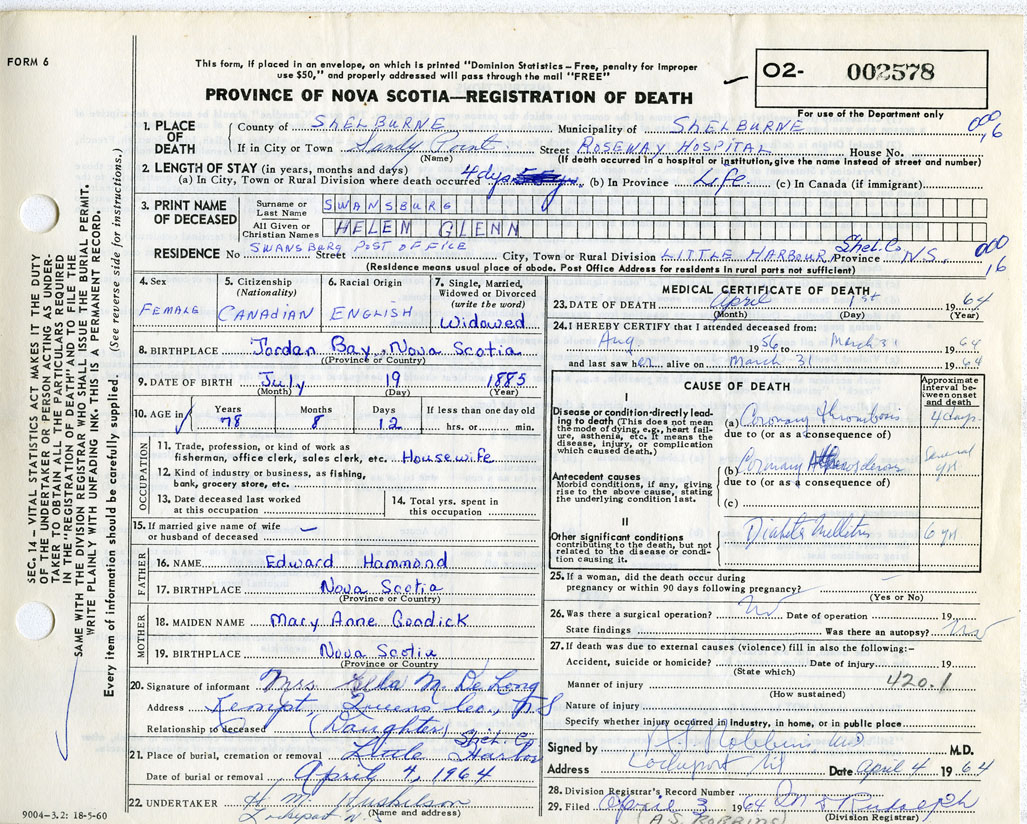 FORM 6
This form, if placed in an envelope, on which is printed "Dominion Statistics – Free, penalty for improper
use $50," and properly addressed will pass through the mail "FREE"
PROVINCE OF NOVA SCOTIA—REGISTRATION OF DEATH
O2- 002578
For use of the Department only
1. PLACE OF DEATH
County of SHELBURNE Municipality of SHELBURNE 000 16
If in City or Town Sandy Point Street ROSEWAY HOSPITAL House No.
(Name) (If death occurred in a hospital or institution, give the name instead of street and number)
2. LENGTH OF STAY (in years, months and days)
(a) In City, Town or Rural Division where death occurred 4 dys (b) In Province Life (c) In Canada (if immigrant)
3. PRINT NAME OF DECEASED
Surname or Last Name SWANSBURG
All Given or Christian Names HELEN GLENN
RESIDENCE No SWANSBERG POST OFFICE Street City, Town or Rural Division LITTLE HARBOUR Shel. Co. Province N.S. 000 16
(Residence means usual place of abode. Post Office Address for residents in rural parts not sufficient)
4. Sex FEMALE
5. Citizenship (Nationality) CANADIAN
6. Racial Origin ENGLISH
7. Single, Married, Widowed or Divorced (write the word) Widowed
8. BIRTHPLACE Jordan Bay, Nova Scotia
(Province or Country)
9. DATE OF BIRTH July 19 1885
(Month) (Day) (Year)
10. AGE in Years Months Days If less than one day old
78 8 12 hrs. or min.
OCCUPATION
11. Trade, profession, or kind of work as
fisherman, office clerk, sales clerk, etc. Housewife
12. Kind of industry or business, as fishing,
bank, grocery store, etc.
13. Date deceased last worked
at this occupation
14. Total yrs. spent in
this occupation
15. If married give name of wife
or husband of deceased —
FATHER
16. NAME Edward Hammond
17. BIRTHPLACE Nova Scotia
(Province or Country)
MOTHER
18. MAIDEN NAME Mary Anne Goodick
19. BIRTHPLACE Nova Scotia
(Province or Country)
20. Signature of informant Mrs Ella M. DeLong
Address Kempt, Queens Co., N S
Relationship to deceased (Daughter)
21. Place of burial, cremation or removal Little Harbor Shel. Co
Date of burial or removal April 4, 1964
22. UNDERTAKER H. M. Huskilson
Lockeport N.S (Name and address)
9004–3.2: 18-5-60
MEDICAL CERTIFICATE OF DEATH
23. DATE OF DEATH April 1st 1964
(Month) (Day) (Year)
24. I HEREBY CERTIFY that I attended deceased from:
Aug. 1956 to March 31 1964
and last saw her alive on March 31 1964
CAUSE OF DEATH
Approximate interval between onset and death
I
Disease or condition-directly lead-
ing to death (This does not mean
the mode of dying, e.g., heart fail-
ure, asthenia, etc. It means the
disease, injury, or complication
which caused death.)
(a) Coronary thrombosis 4 days
due to (or as a consequence of)
Antecedent causes
Morbid conditions, if any, giving
rise to the above cause, stating
the underlying condition last.
(b) Coronary Several yrs
due to (or as a consequence of)
(c)
II
Other significant conditions
contributing to the death, but not
related to the disease or condi-
tion causing it.
Diabetes Mellitus 6 yrs
25. If a woman, did the death occur during
pregnancy or within 90 days following pregnancy?
(Yes or No)
26. Was there a surgical operation? No Date of operation 19
State findings Was there an autopsy? No
27. If death was due to external causes (violence) fill in also the following:–
Accident, suicide or homicide? Date of injury 19
(State which)
Manner of injury 420.1
(How sustained)
Nature of injury
Specify whether injury occurred in industry, in home, or in public place
Signed by Robbins MD M.D.
Address Lockeport NS Date April 4 1964
28. Division Registrar's Record Number
29. Filed April 3 1964 Rudolph
(A.S. ROBBINS) (Division Registrar)
SEC. 14 – VITAL STATISTICS ACT MAKES IT THE DUTY
OF THE UNDERTAKER OR PERSON ACTING AS UNDER-
TAKER TO OBTAIN ALL THE PARTICULARS REQUIRED
IN THE "REGISTRATION OF DEATH" AND TO FILE THE
SAME WITH THE DIVISION REGISTRAR WHO SHALL ISSUE THE BURIAL PERMIT.
WRITE PLAINLY WITH UNFADING INK. THIS IS A PERMANENT RECORD.
Every item of information should be carefully supplied. (See reverse side for instructions.)